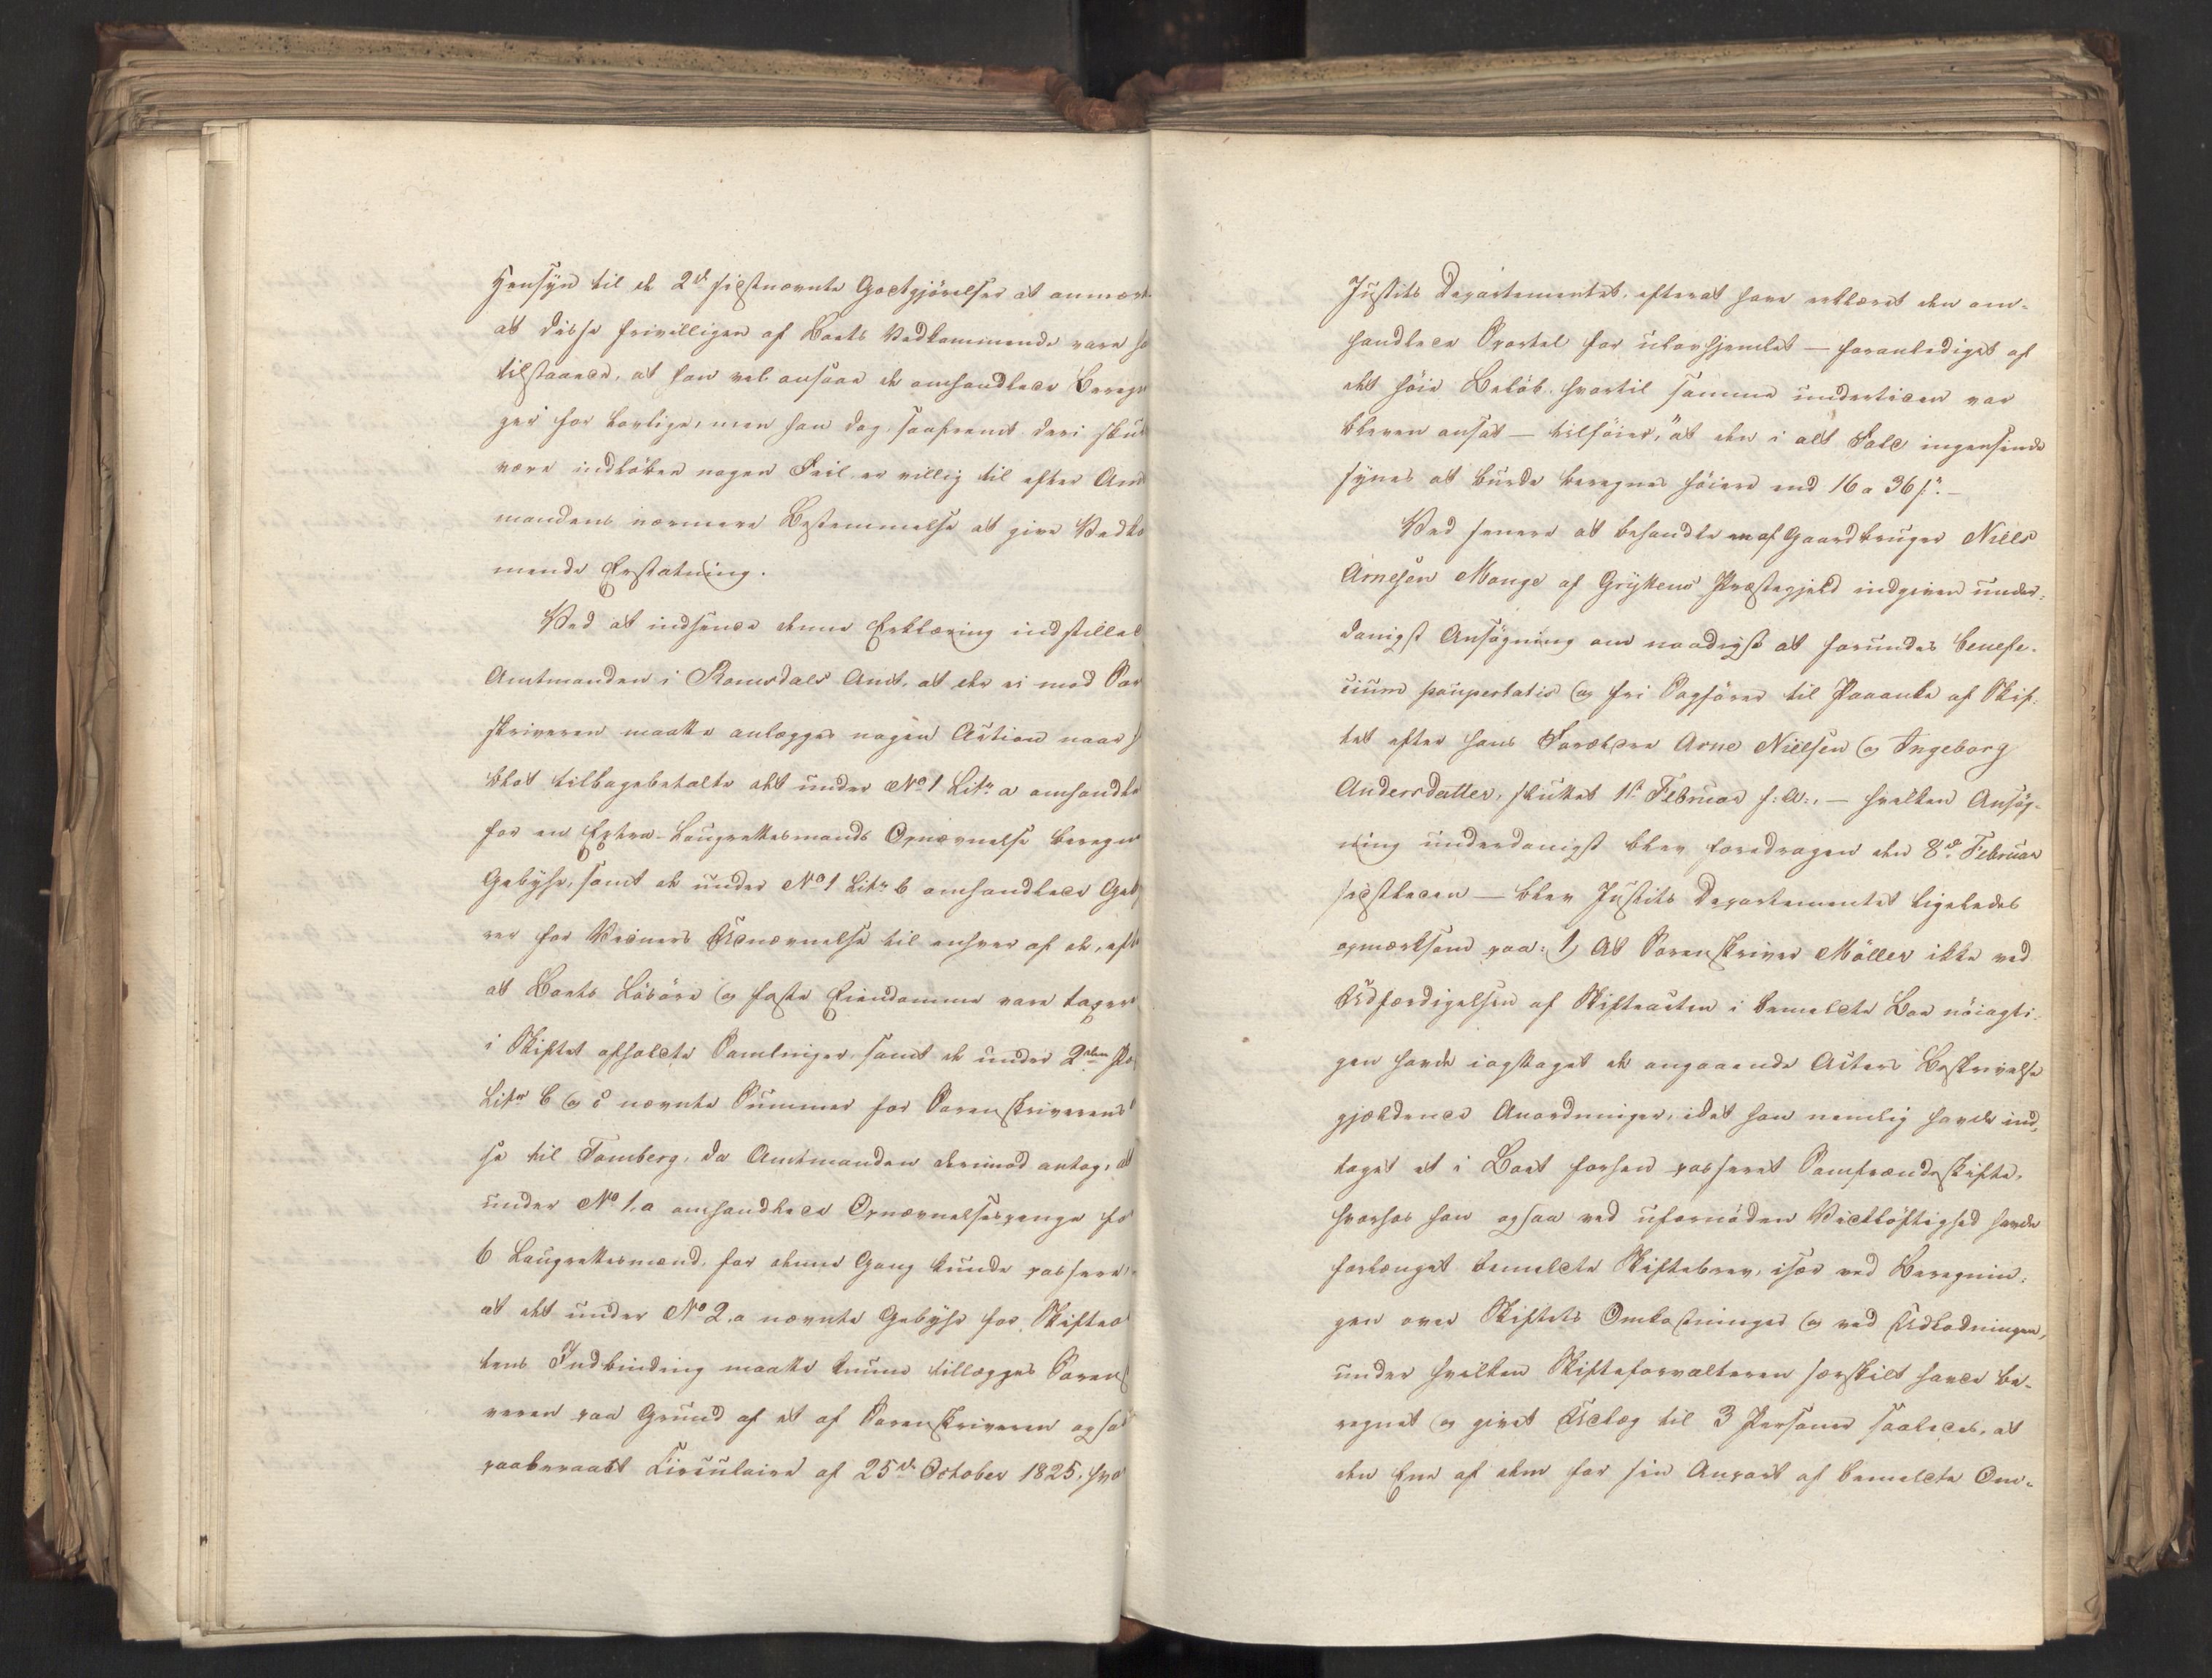 Hensyn til de 2de sistnævnte Godtgjörelser at anmærk
at disse frivilligen af Boets Vedkommende vare
tilstaaede, at han vel ansaae de omhandlede Bereg
ger for lovlige, men han dog, saafremt deri sku
være indlöben nogen Feil er villig til efter Amt
mandens nærmere Bestemmelse at give Vedko
mende Erstatning.
Ved at indsende denne Erklæring indstillede
Amtmanden i Romsdals Amt, at der ei mod Sor
skriveren maatte anlægges nogen Action naar
blot tilbagebetalte det under No 1 Litr a omhandle
for en Extra-Laugrettesmands Opnævnelse beregne
Gebyhr, samt de under No 1 Litr b omhandlede Geb
rer for Vidners Udnævnelse til enhver af de, efte
at Boets Lösöre og faste Eiendomme vare taxere
i Skiftet afholdte Samlinger samt de under 2den Po
Litr b og c nævnte Summer for Sorenskriverens
se til Tomberg, da Amtmanden derimod antog, at
under No 1, a omhandlede Opnævnelsespenge fo
6 Laugrettesmænd, for denne Gang kunde passere,
at det under No 2, a nævnte Gebyhr for Skifteac
tens Indbinding maatte kunne tillægges Sorens
veren paa Grund af et af Sorenskriveren ogsaa
paaberaabt Circulaire af 25de October 1825, hvo
Justits Departementet, efterat have erklæret den om-
handlede Opostel for ulovhjemlet — foranlediget af
det höie Belöb hvortil samme undertiden var
bleven ansat — tilföier, "at den i alt Fald ingensinde
synes at burde beregnes höiere end 16 a 36 s." —
Ved senere at behandle en af Gaardbruger Niels
Arnesen Monge af Gryttens Præstegjeld indgiven under-
danigst Ansögning om naadigst at forundes benefi-
cium paupertatis og fri Sagförer til Paaanke af Skif-
tet efter hans Forældre Arne Nielsen og Ingeborg
Andersdatter, sluttet 1ste Februar f: A:, — hvilken Ansög-
ning underdanigst blev foredragen den 8de Februar
sidstleden — blev Justits Departementet ligeledes
opmærksom paa: 1, At Sorenskriver Möller ikke ved
Udfærdigelsen af Skifteacten i bemeldte Boe nöiagti-
gen havde iagttaget de angaaende Acters Beskrivelse
gjældende Anordninger, idet han nemlig havde ind-
taget et i Boet forhen passeret Samfrændeskifte,
hvorhos han ogsaa ved ufornöden Vidtlöftighed havde
forlænget bemeldte Skiftebrev, især ved Beregnin-
gen over Skiftets Omkostninger og ved Udlodningen,
under hvilken Skifteforvalteren særskilt havde be-
regnet og givet Udlæg til 3 Personer saaledes, at
den Ene af dem for sin Anpart af bemeldte Om-